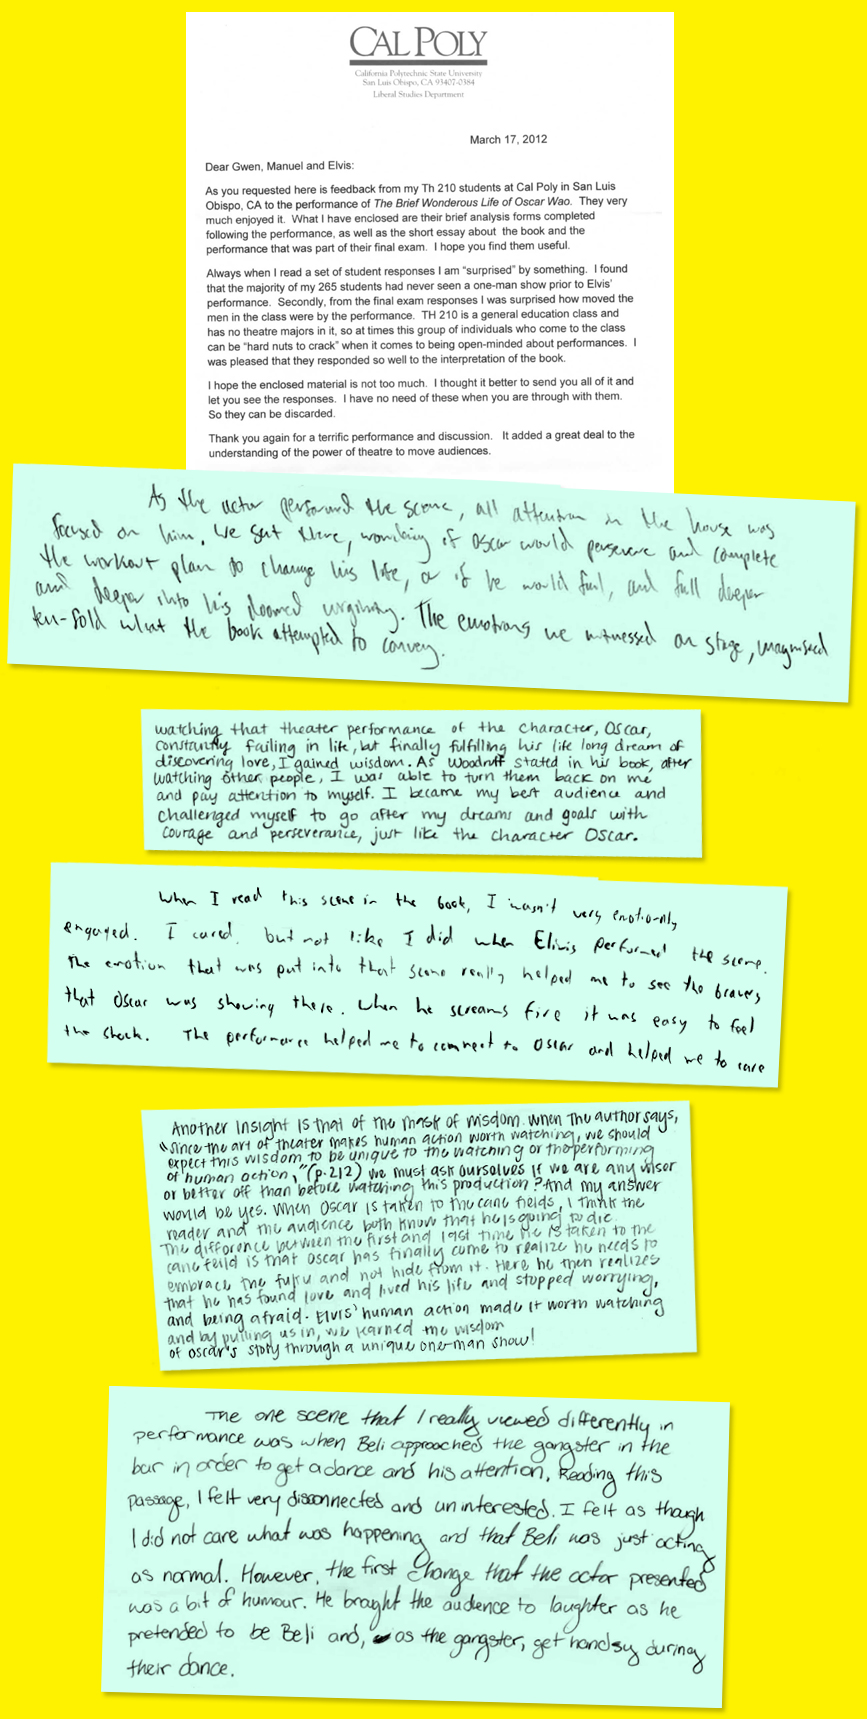 CAL POLY
California Polytechnic State University
San Luis Obispo, CA 93407-0384
Liberal Studies Department
March 17, 2012
Dear Gwen, Manuel and Elvis:
As you requested here is feedback from my Th 210 students at Cal Poly in San Luis
Obispo, CA to the performance of The Brief Wonderous Life of Oscar Wao. They very
much enjoyed it. What I have enclosed are their brief analysis forms completed
following the performance, as well as the short essay about the book and the
performance that was part of their final exam. I hope you find them useful.
Always when I read a set of student responses I am “surprised” by something. I found
that the majority of my 265 students had never seen a one-man show prior to Elvis’
performance. Secondly, from the final exam responses I was surprised how moved the
men in the class were by the performance. TH 210 is a general education class and
has no theatre majors in it, so at times this group of individuals who come to the class
can be “hard nuts to crack” when it comes to being open-minded about performances. I
was pleased that they responded so well to the interpretation of the book.
I hope the enclosed material is not too much. I thought it better to send you all of it and
let you see the responses. I have no need of these when you are through with them.
So they can be discarded.
Thank you again for a terrific performance and discussion. It added a great deal to the
understanding of the power of theatre to move audiences.
As the actor performed the scene, all attention in the house was
focused on him. We sat there, wondering if Oscar would persevere and complete
the workout plan to change his life, or if he would fail, and fall deeper
and deeper into his doomed virginity. The emotions we witnessed on stage, magnified
ten-fold what the book attempted to convey.
watching that theater performance of the character, Oscar,
constantly failing in life, but finally fulfilling his life long dream of
discovering love, I gained wisdom. As Woodruff stated in his book, after
watching other people, I was able to turn them back on me
and pay attention to myself. I became my best audience and
challenged myself to go after my dreams and goals with
courage and perseverance, just like the character Oscar.
When I read this scene in the book, I wasn't very emotionally
engaged. I cared, but not like I did when Elivis performed the scene.
The emotion that was put into that scene really helped me to see the bravery
that Oscar was showing there. When he screams fire it was easy to feel
the shock. The performance helped me to connect to Oscar and helped me to care
Another insight is that of the mask of wisdom. When the author says,
"Since the art of theater makes human action worth watching, we should
expect this wisdom to be unique to the watching or the performing
of human action," (p.212) we must ask ourselves if we are any wiser
or better off than before watching this production? And my answer
would be yes. When Oscar is taken to the cane fields, I think the
reader and the audience both know that he is going to die.
The difference between the first and last time he is taken to the
cane feild is that Oscar has finally come to realize he needs to
embrace the fuku and not hide from it. Here he then realizes
that he has found love and lived his life and stopped worrying,
and being afraid. Elvis' human action made it worth watching
and by pulling us in, we learned the wisdom
of Oscar's story through a unique one-man show!
The one scene that I really viewed differently in
performance was when Beli approached the gangster in the
bar in order to get a dance and his attention. Reading this
passage, I felt very disconnected and uninterested. I felt as though
I did not care what was happening and that Beli was just acting
as normal. However, the first change that the actor presented
was a bit of humour. He braght the audience to laughter as he
pretended to be Beli and, as the gangster, get handsy during
their dance.